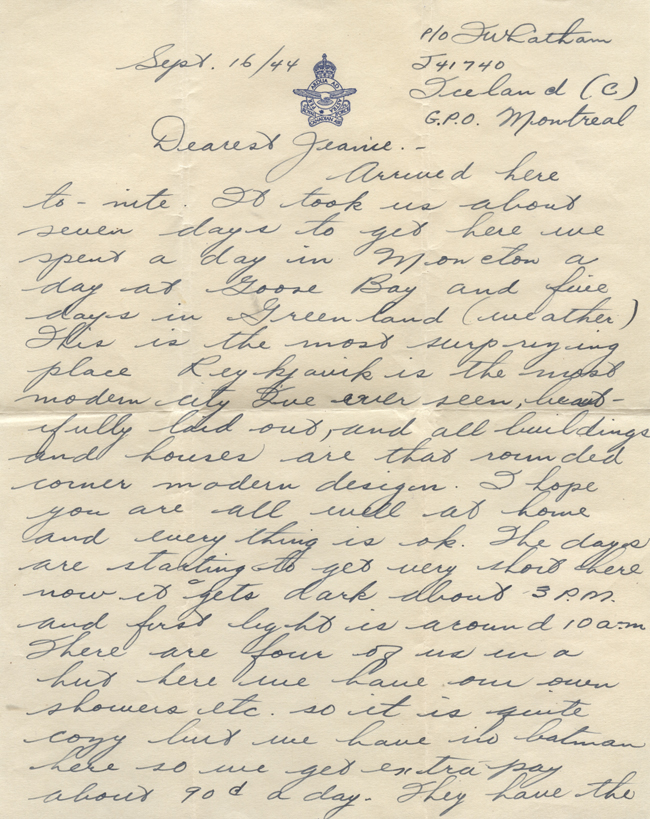 P/O J W Latham
Sept. 16/44
J41740
Iceland (C)
G.P.O. Montreal
Dearest Jeanie.-
Arrived here
to-nite. It took us about
seven days to get here we
spent a day in Moncton a
day at Goose Bay and five
days in Greenland (weather)
This is the most surprizing
place Reykjavik is the most
modern city I've ever seen, beaut-
ifully laid out, and all buildings
and houses are that rounded
corner modern design. I hope
you are all well at home
and everything is ok. The days
are starting to get very short here
now it gets dark about 3 P.M.
and first light is around 10 a.m
There are four of us in a
hut here we have our own
showers etc. so it is quite
cozy but we have no batman
here so we get extra pay
about 90¢ a day. They have the